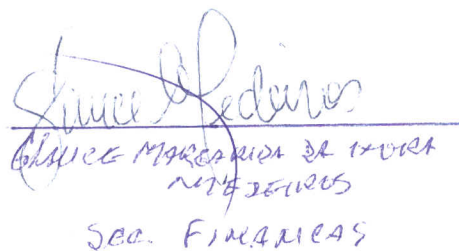 Glauce Medeiros
GLAUCE MARGARIDA DA
MEDEIROS
SEC. FINANCAS